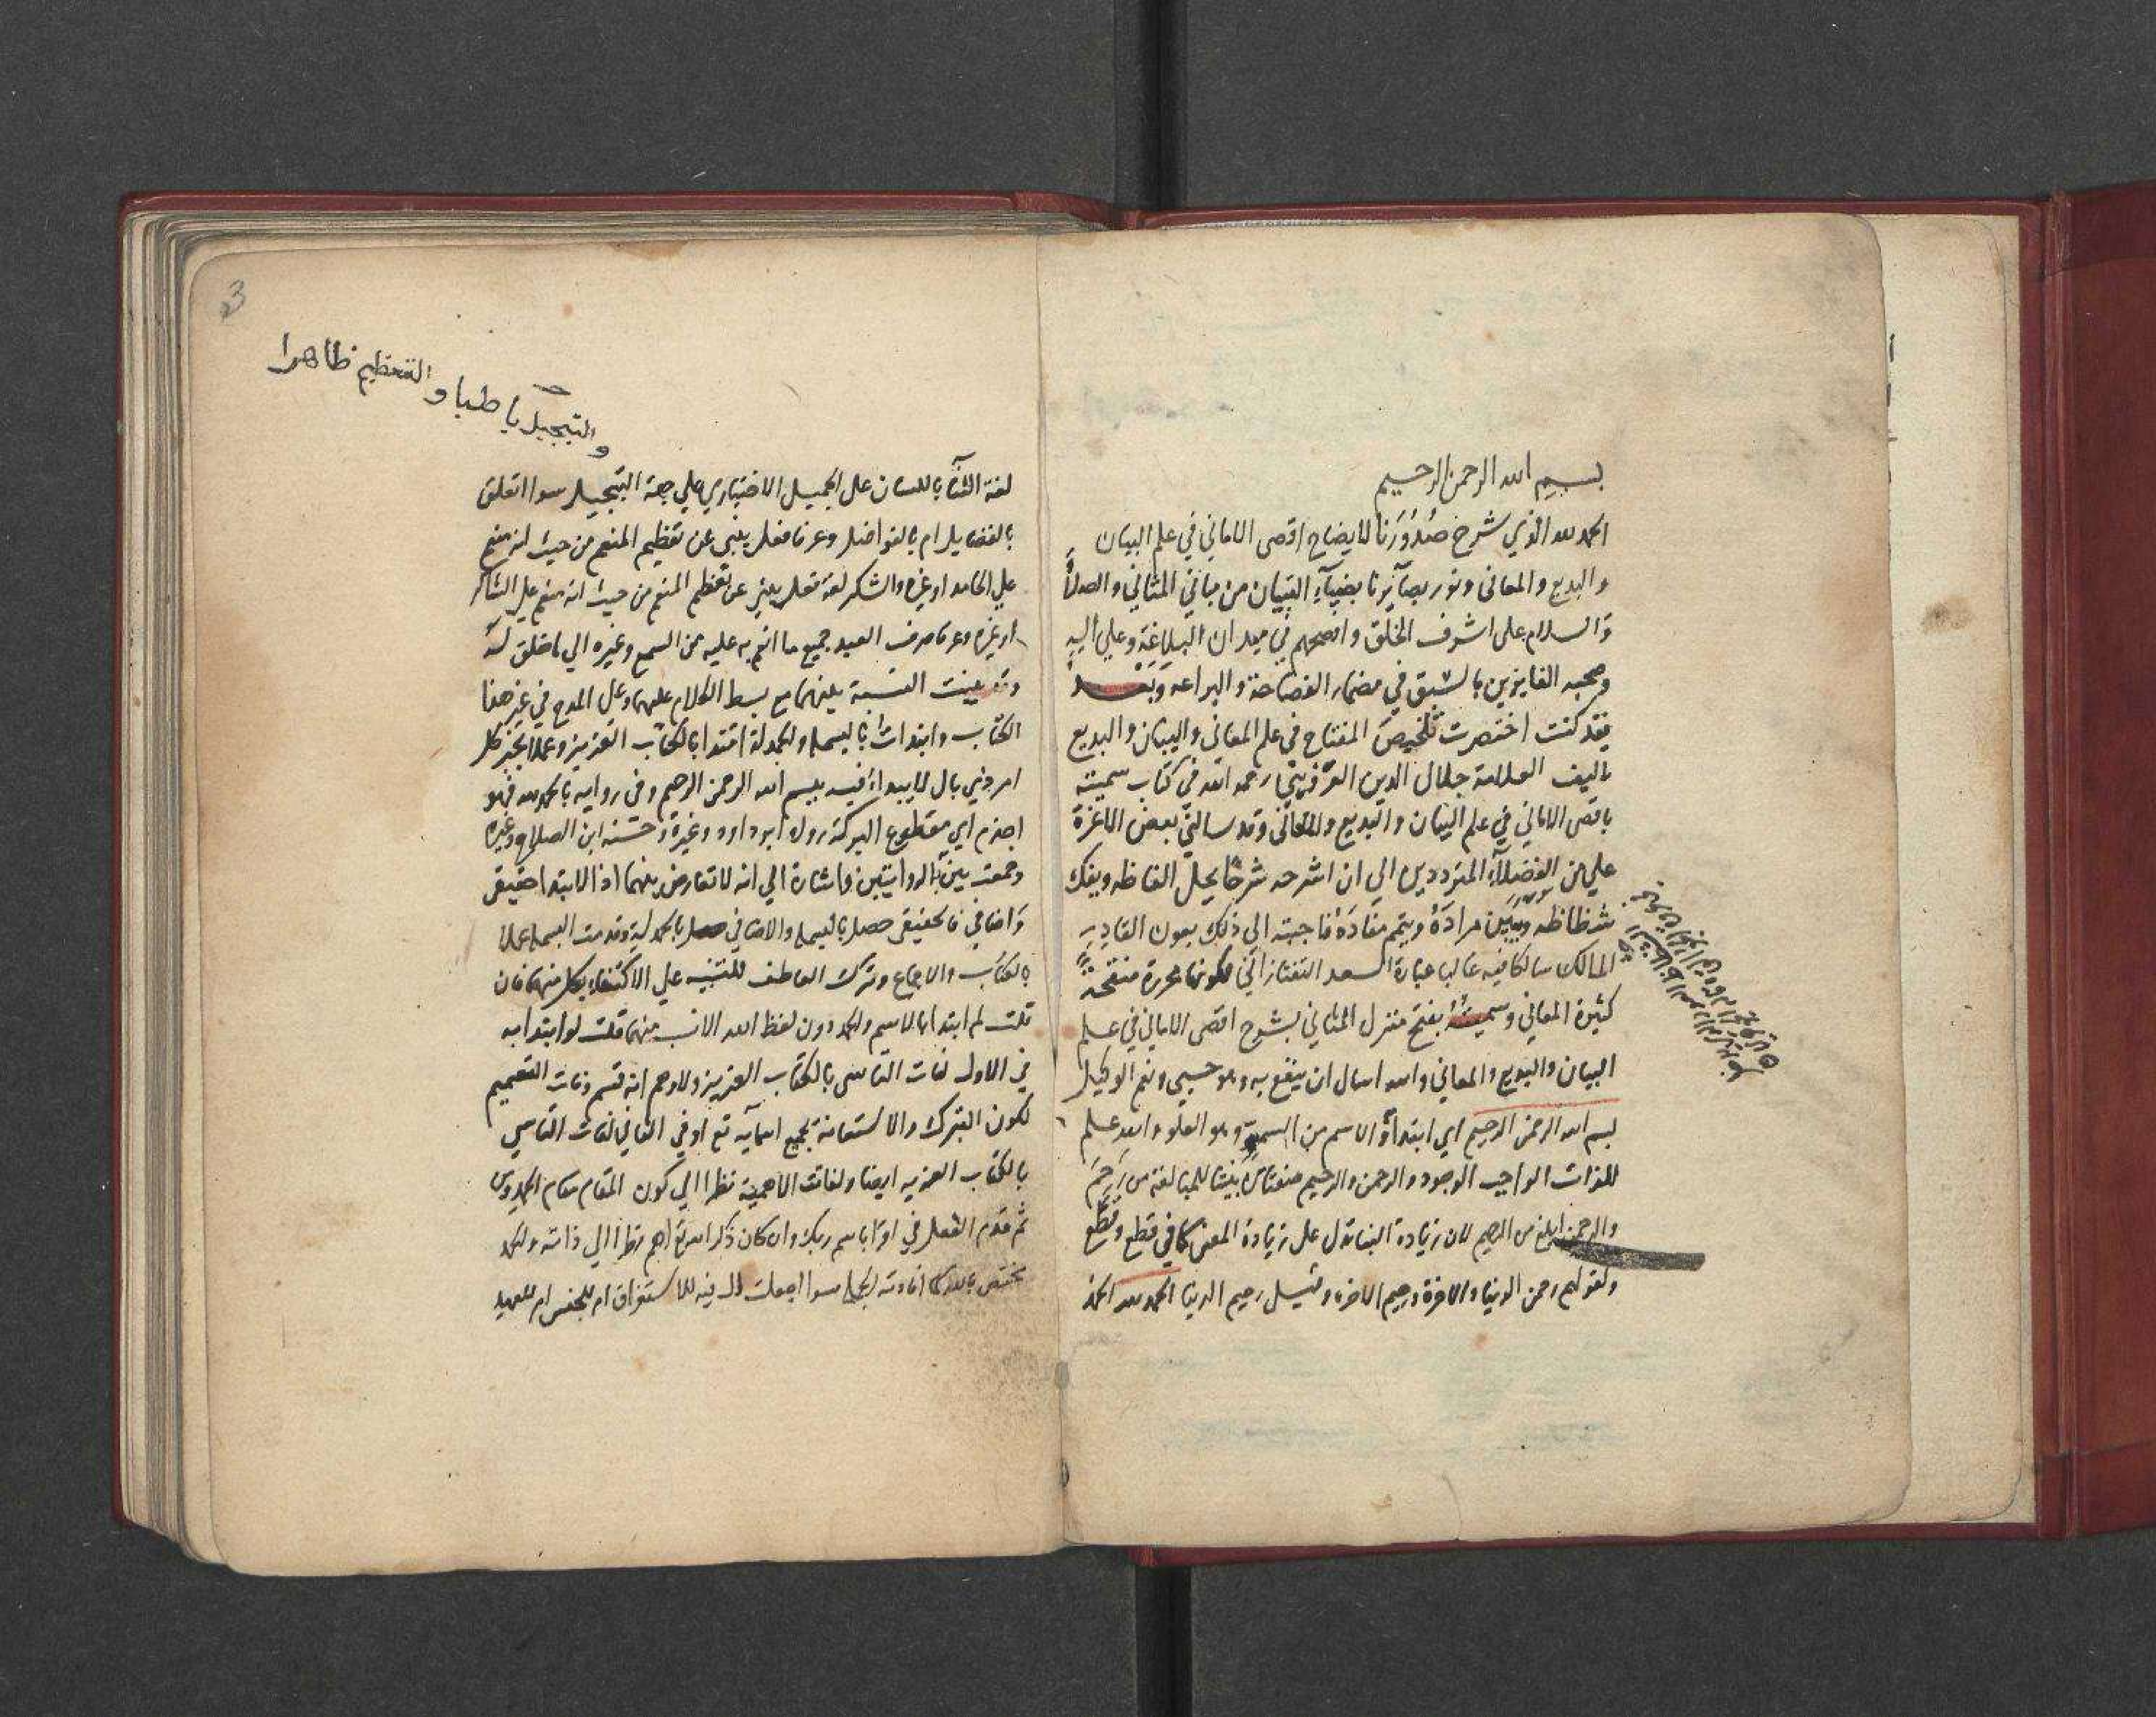 بسم الله الرحمن الرحيم
الحمد لله الذي شرح صُدُوْرَنا لايضاح اقصى الاماني في علم البيان
والبديع والمعانى ونور بصآئرنا بضيآء التبيان من مباني المثاني والصلاةُ
وَالسلام على اشرف الخلق وافصحهم في ميدان البلاغة وعلي اليه
وصحبه الفايزين بالسَّبق في مضمار الفصاحة والبراعه وَبَعْدُ
فقد كنت اختصرت تلخيصَ المفتاح فى علم المعانى والبيان والبديع
تاليف العلامة جلال الدين القزويني رحمه الله فى كتاب سميته
باقصى الاماني في علم البيان والبديع والمعاني وقد سالني بعض الاعزة
علي من الفضلآء المترددين الي ان اشرحه شرحًا يحل الفاظه ويفك
شظاظه ويبين مرادَهُ ويتمم مفادَهُ فاجبته الى ذلك بعون القادِرِ
المالك سالكا فيه غالبا عبارة السعد التفتازاني لكونها محررة منقحةً
كثيرة المعاني وسميتُهُ بفتح منزل المثاني بشرح اقصى الاماني في علم
البيان والبديع والمعاني والله اسال ان ينفع به وهو حسبي ونعم الوكيل
بسم الله الرحمن الرحيم اي ابتدأ والاسم من السموّ وهو العلو والله علم
للذات الواجب الوجود والرحمن والرحيم صفتان بُنيتا للمبالغة من رَحِمَ
والرحمن ابلغ من الرحيم لان زيادة البنا تدل على زيادة المعنى كما في قطع وقطَّع
ولقولهم رحمن الدنيا والاخرة ورحيم الاخرة وقيل رحيم الدنيا الحمد لله الحمد
والتبجيل باطنا والتعظيم ظاهرا
لغة الثنآ باللسان على الجميل الاختياري علي جهة التبجيل سوا اتعلق
بالفضايل ام بالفواضل وعرفا فعل ينبي عن تعظيم المنعم من حيث انه منعم
علي الحامد او غيره والشكر لغة فعل ينبي عن تعظيم المنعم من حيث انه منعم علي الشاكر
او غيره وعرفا صرف العبد جميع ما انعم به عليه من السمع وغيره الي ما خلق له
وقد بينت النسبة بينهما مع بسط الكلام عليهما وعلى المدح في غير هذا
الكتاب وابتدات بالبسملة والحمدلة اقتدا بالكتاب العزيز وعملا بخبر كل
امر ذي بال لا يبداء فيه ببسم الله الرحمن الرحيم وفى رواية بالحمد لله فهو
اجذم اي مقطوع البركة رواه ابو داود وغيره وحسنه ابن الصلاح وغيره
وجمعت بين الروايتين واشارة الي انه لا تعارض بينهما اذ الابتدا حقيقى
وَاضافي فالحقيقى حصل بالبسملة والاضافي حصل بالحمدلة وقدمت البسملة عملا
بالكتاب والاجماع وترك العاطف للتنبيه علي الاكتفاء بكل منهما فان
قلت لم ابتدا بالاسم والحمد دون لفظ الله الانسب منهما قلت لو ابتدا به
في الاول لفات التاسى بالكتاب العزيز ولاوهم انه قسم وفات التعميم
لكون التبرك والاستعانة بجميع اسمآيه تع او في الثاني لفات التاسي
بالكتاب العزيز ايضا ولفات الاهمية نظرا الي كون المقام مقام الحمد ومن
ثم قدم الفعل في اقرا باسم ربك وان كان ذكر الله تع اهم نظرا الي ذاته والحمد
مختص بالله كما افادته الجملة سوا اجعلت ال فيه للاستغراق ام للجنس ام للعهد
3